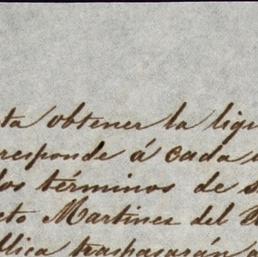 ta obtener la liqu
responde á cada u
los términos de s
eto Martinez del R
blica traspasarán a